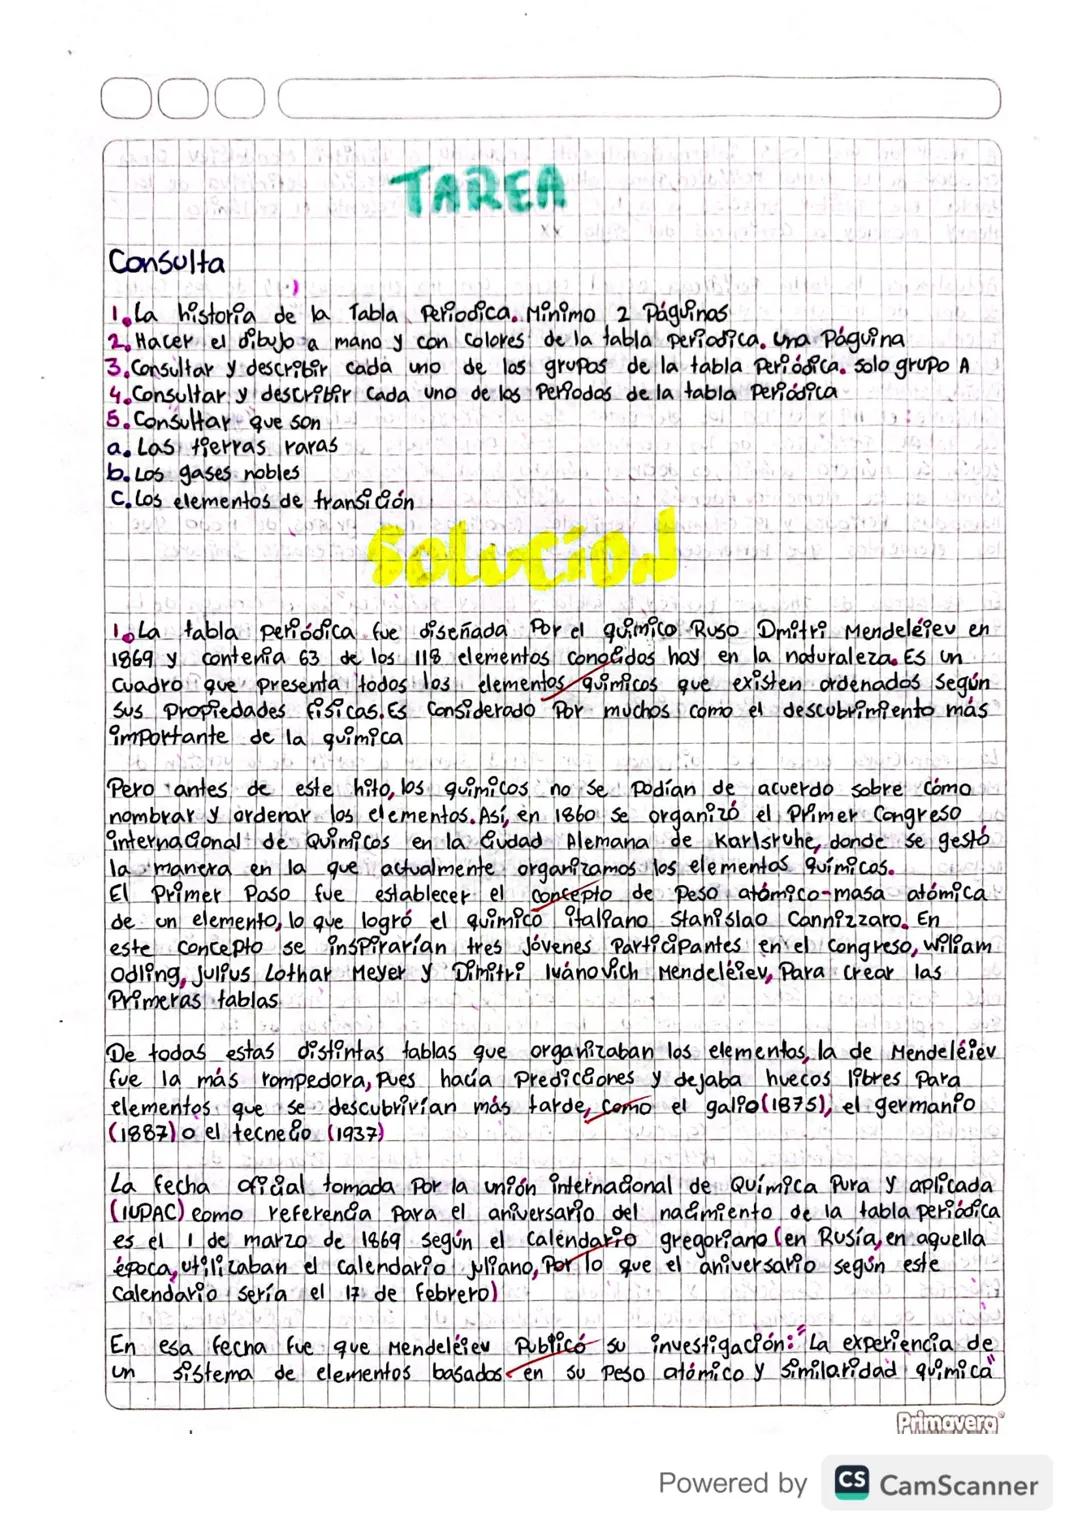 TAREA
Consulta
1. La historia de la Tabla Periodica. Minimo 2 Páguinas
2. Hacer el dibujo a mano y con colores de la tabla periodica. una Páguina
3. Consultar y describir cada uno de los grupos de la tabla Periódica. solo grupo A
4. Consultar y describir cada uno de los Periodos de la tabla Periódica
5. Consultar que son
a. Las tierras raras
b. Los gases nobles
C. Los elementos de transición
SOLUCIÓN
1. La tabla periódica fue diseñada Por el químico Ruso Dmitri Mendeleiev en
1869 y contenia 63 de los 118 elementos conocidos hoy en la naturaleza. Es un
cuadro que presenta todos los elementos químicos que existen ordenados según
sus propiedades físicas. Es considerado Por muchos como el descubrimiento más
importante de la química
Pero antes de este hito, los químicos no se Podían de acuerdo sobre cómo
nombrar y ordenar los elementos. Así, en 1860 se organizó el Primer Congreso
internacional de Químicos en la Ciudad Alemana de Karlsruhe, donde se gestó
la manera en la que actualmente organizamos los elementos químicos.
El Primer Paso fue establecer el concepto de Peso atómico-masa atómica
de un elemento, lo que logró el químico italiano Stanislao Cannizzaro. En
este concepto se inspirarían tres jóvenes Participantes en el congreso, William
Odling, Julius Lothar Meyer y Dimitri Ivánovich Mendeléiev, Para crear las
Primeras tablas
De todas estas distintas tablas que organizaban los elementos, la de Mendeléiev
fue la más rompedora, Pues hacía Predicciones y dejaba huecos libres Para
elementos que se descubrivían más tarde, como el galio (1875), el germanio
(1887) o el tecnecio (1937)
La fecha oficial tomada Por la unión internacional de Química Pura y aplicada
(IUPAC) como referencia Para el aniversario del nacimiento de la tabla periódica
es el 1 de marzo de 1869 según el calendario gregoriano (en Rusía, en aquella
época, utilizaban el calendario juliano, Por lo que el aniversario según este
calendario sería el 17 de febrero)
En esa fecha fue que Mendeléiev Publicó su investigación: "La experiencia de
un sistema de elementos basados en su Peso atómico y similaridad química"
Primavera
Powered by CS CamScanner